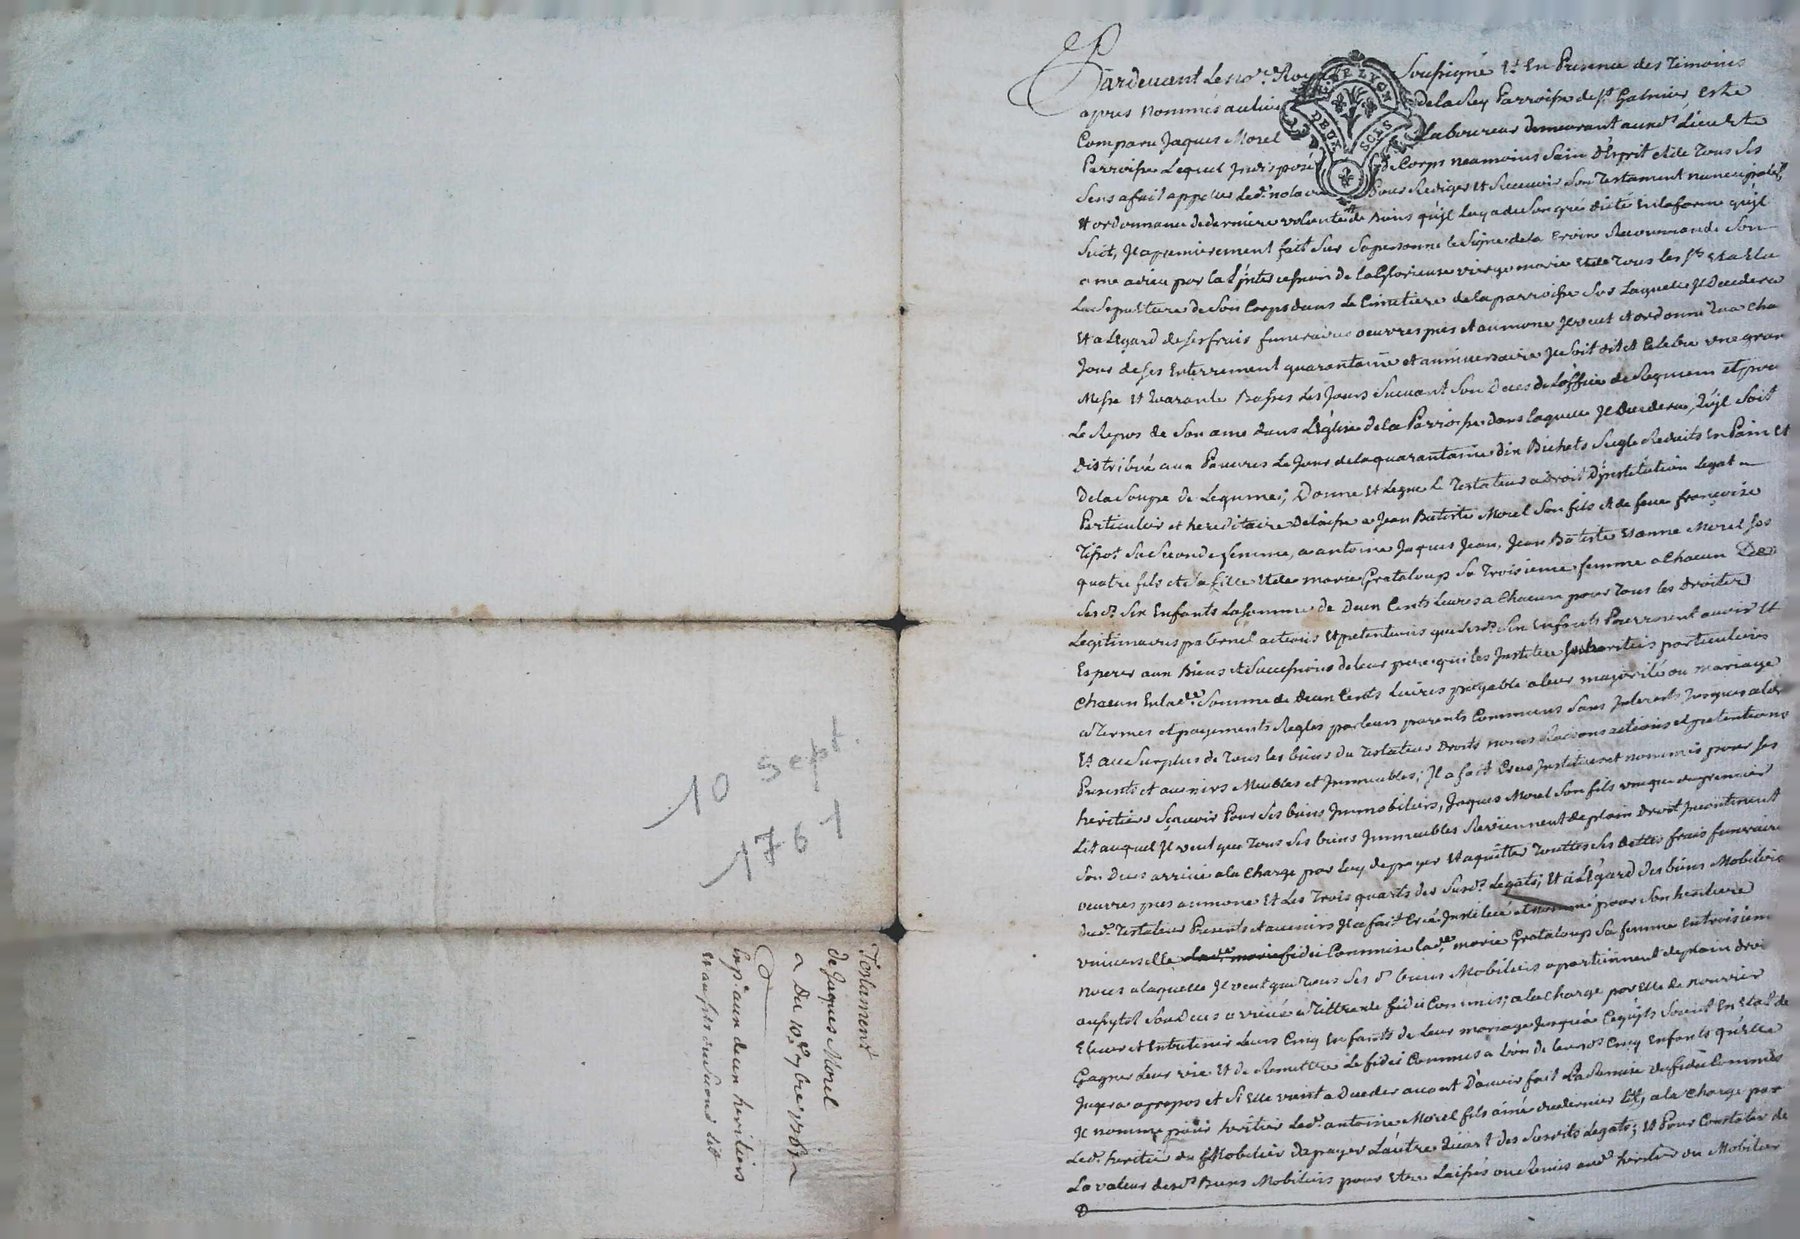 10 sept.
1761
Testament
de Jaques Morel
Du 10e 7bre 1761
aun deux heritiers
et aussi du second lit
GNE. LYON
DEUX SOLS
Pardevant le no.re Roy soussigné et en presence des temoins
apres nommes au lieu de la Rey parroisse de st Galmier este
comparu Jaques Morel laboureur demeurant aud. lieu et
parroisse lequel indisposé de corps neamoins sain d'esprit et de tous ses
sens a fait appeller led. notaire pour rediger et recevoir son testament nuncupatif
et ordonnance de derniere volonté de biens qu'il luy a de son gré dicté en la forme qu'il
suit, il a premierement fait sur sa personne le signe de la croix recommandé son
ame a dieu par la l'intercession de la glorieuse vierge marie et de tous les sts et a elu
la sepulture de son corps dans le cimetiere de la parroisse sos laquelle il decedera
et a l'egard de ses frais funeraires oeuvres pies et aumone il veut et ordonne
jour de ses enterrement quarantaine et anniversaire il soit dit et celebré une gran
messe et quarante basses les jours suivant son deces de l'office de requiem et pour
le repos de son ame dans l'église de la parroisse dans laquelle il decedera, qu'il soit
distribué aux pauvres le jour de la quarantaine dix bichets seigle reduits en pain et
de la soupe de legumes; donne et legue le testateur a droit d'institution legat
particulier et hereditaire delaisse a Jean Batiste Morel son fils et de feue françoise
sa seconde femme, a antoine Jaques Jean, Jean Batiste et anne Morel ses
quatre fils et sa fille et de marie Grataloup sa troisieme femme a chacun
sesd. six enfants la somme de deux cents livres a chacun pour tous les droits
legitimaires paternel actions et pretentions que lesd. six enfants pourroient avoir et
esperer aux biens et successions de leur pere qui les institue heritiers particuliers
chacun en lad. somme de deux cents livres payable a leur majorité ou mariage
a termes et payements regles par leurs parents communs sans interets jusques alors
et au surplus de tous les biens du testateur droits noms raisons actions et pretentions
presents et avenirs meubles et immeubles; il a fait creé institué et nommés pour ses
heritiers sçavoir pour ses biens immobiliers, Jaques Morel son fils unique du premier
lit auquel il veut que tous ses biens immeubles reviennent de plain droit incontinent
son deces arrivé a la charge par luy de payer et aquitter touttes ses dettes frais funeraires
oeuvres pies aumone et les trois quarts des susd. legats; et a l'égard des biens mobiliers
dud. testateur presents et avenirs il a fait creé institué et nommé pour son heritiere
universelle fidei commise lad. marie Grataloup sa femme en troisieme
noces a laquelle il veut que tous ses d. biens mobiliers apartiennent de plain droit
aussytot son deces arrivé a tiltre de fidei commis; a la charge par elle de nourrir
elever et entretenir leurs cinq enfants de leur mariage jusqu'a ce qu'ils soient en etat de
gagner leur vie et de remettre le fidei commis a l'un de leursd. cinq enfants qu'elle
jugera apropos et si elle vient a deceder avant d'avoir fait la remise du fidei commis
il nomme pour heritier led. antoine Morel fils ainé du dernier lit, a la charge par
led. heritier du mobilier de payer l'autre quart des susdits legats; et pour constater de
la valeur desd. biens mobiliers pour etre laissés ou remis aud. heritier du mobilier